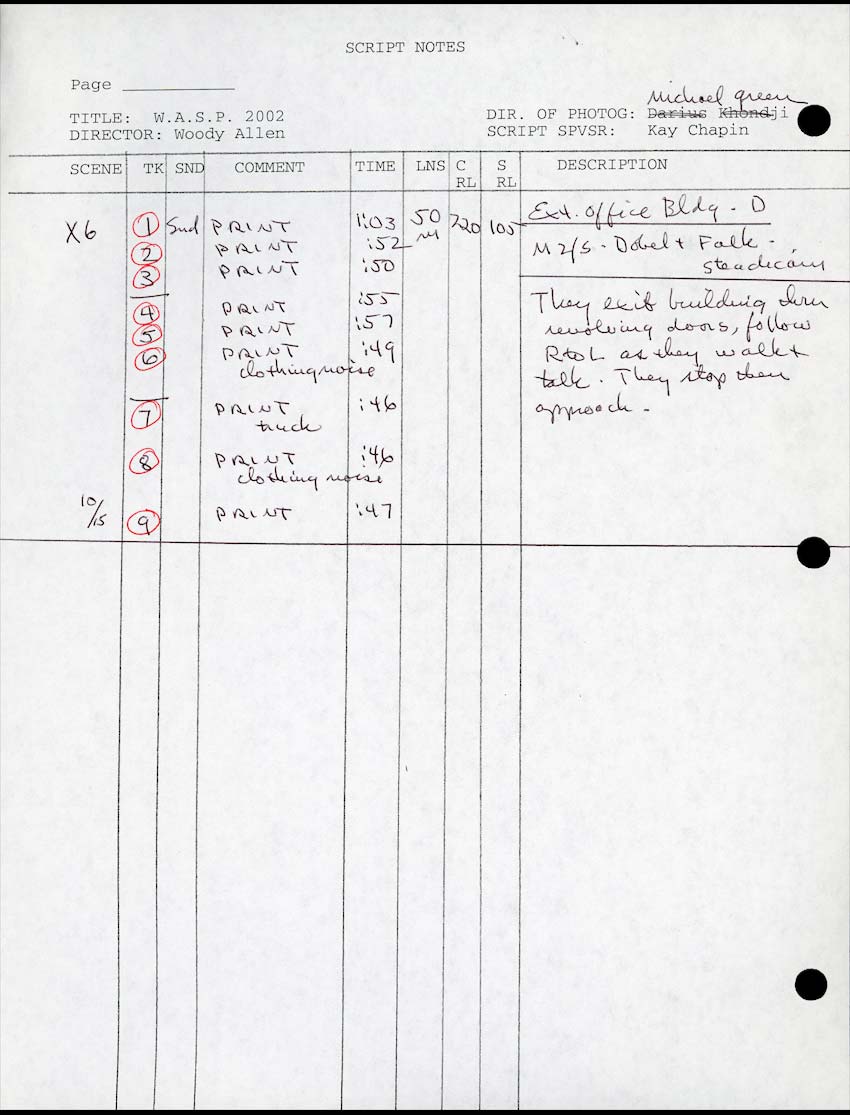 SCRIPT NOTES
Page
Michael Green
TITLE: W.A.S.P. 2002 DIR. OF PHOTOG: Darius Khondji
DIRECTOR: Woody Allen SCRIPT SPVSR: Kay Chapin
SCENE TK SND COMMENT TIME LNS C RL S RL DESCRIPTION
Ext. Office Bldg - D
X6 1 Snd PRINT 1:03 50 720 105
2 PRINT :52 M 2/S - Dobel + Falk -
3 PRINT :50 steadicam
4 PRINT :55 They exit building thru
5 PRINT :57 revolving doors, follow
6 PRINT :49 R to L as they walk +
clothing noise talk. They stop then
7 PRINT :46 approach -
truck
8 PRINT :46
clothing noise
10/15 9 PRINT :47